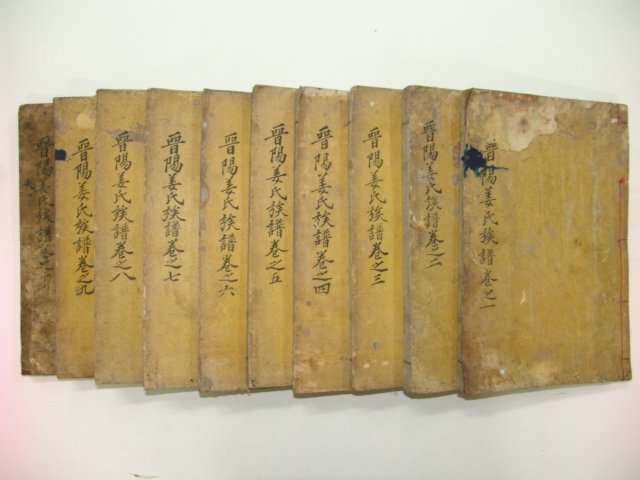 晉陽姜氏族譜卷之一
晉陽姜氏族譜卷之二
晉陽姜氏族譜卷之三
晉陽姜氏族譜卷之四
晉陽姜氏族譜卷之五
晉陽姜氏族譜卷之六
晉陽姜氏族譜卷之七
晉陽姜氏族譜卷之八
晉陽姜氏族譜卷之九
晉陽姜氏族譜